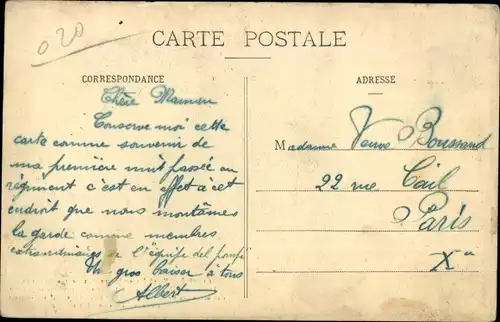 020
CARTE POSTALE
CORRESPONDANCE
Chère Maman
Conserve moi cette
carte comme souvenir de
ma première nuit passée au
régiment c'est en effet à cet
endroit que nous montâmes
la garde comme membres
extraordinaires de l'équipe del pompe
Un gros baiser à tous
Albert
ADRESSE
Madame Veuve Boussaud
22 rue Cail
Paris
Xe